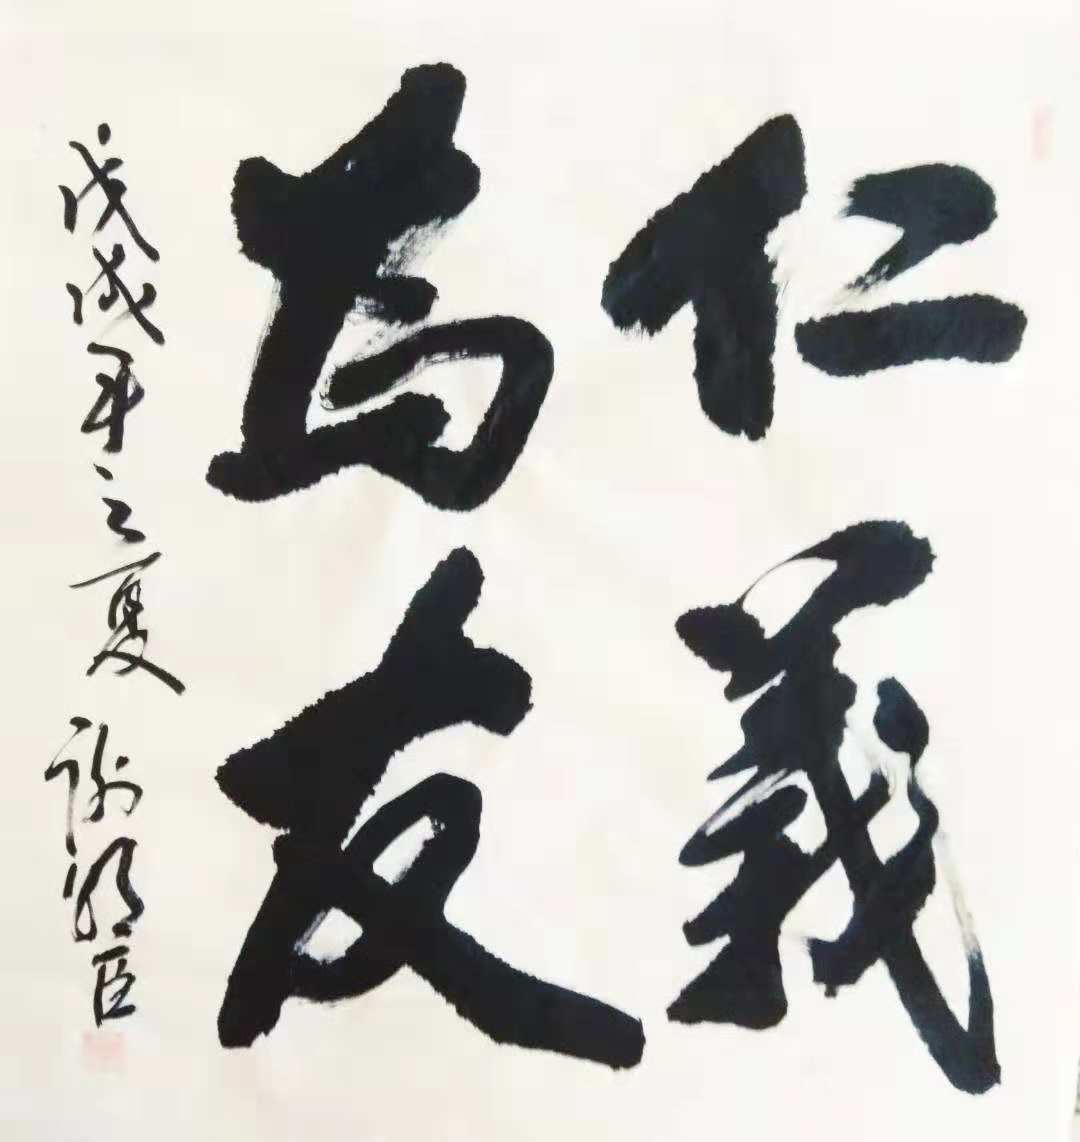 仁義
為友
戊戌年之夏 谢臣